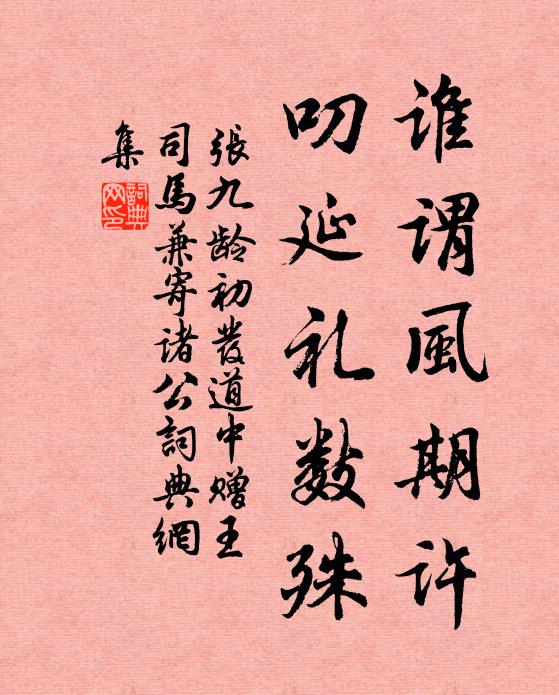 谁谓風期许
叨延礼数殊
張九龄初發道中赠王
司馬兼寄诸公詞典網
集
詞典网印